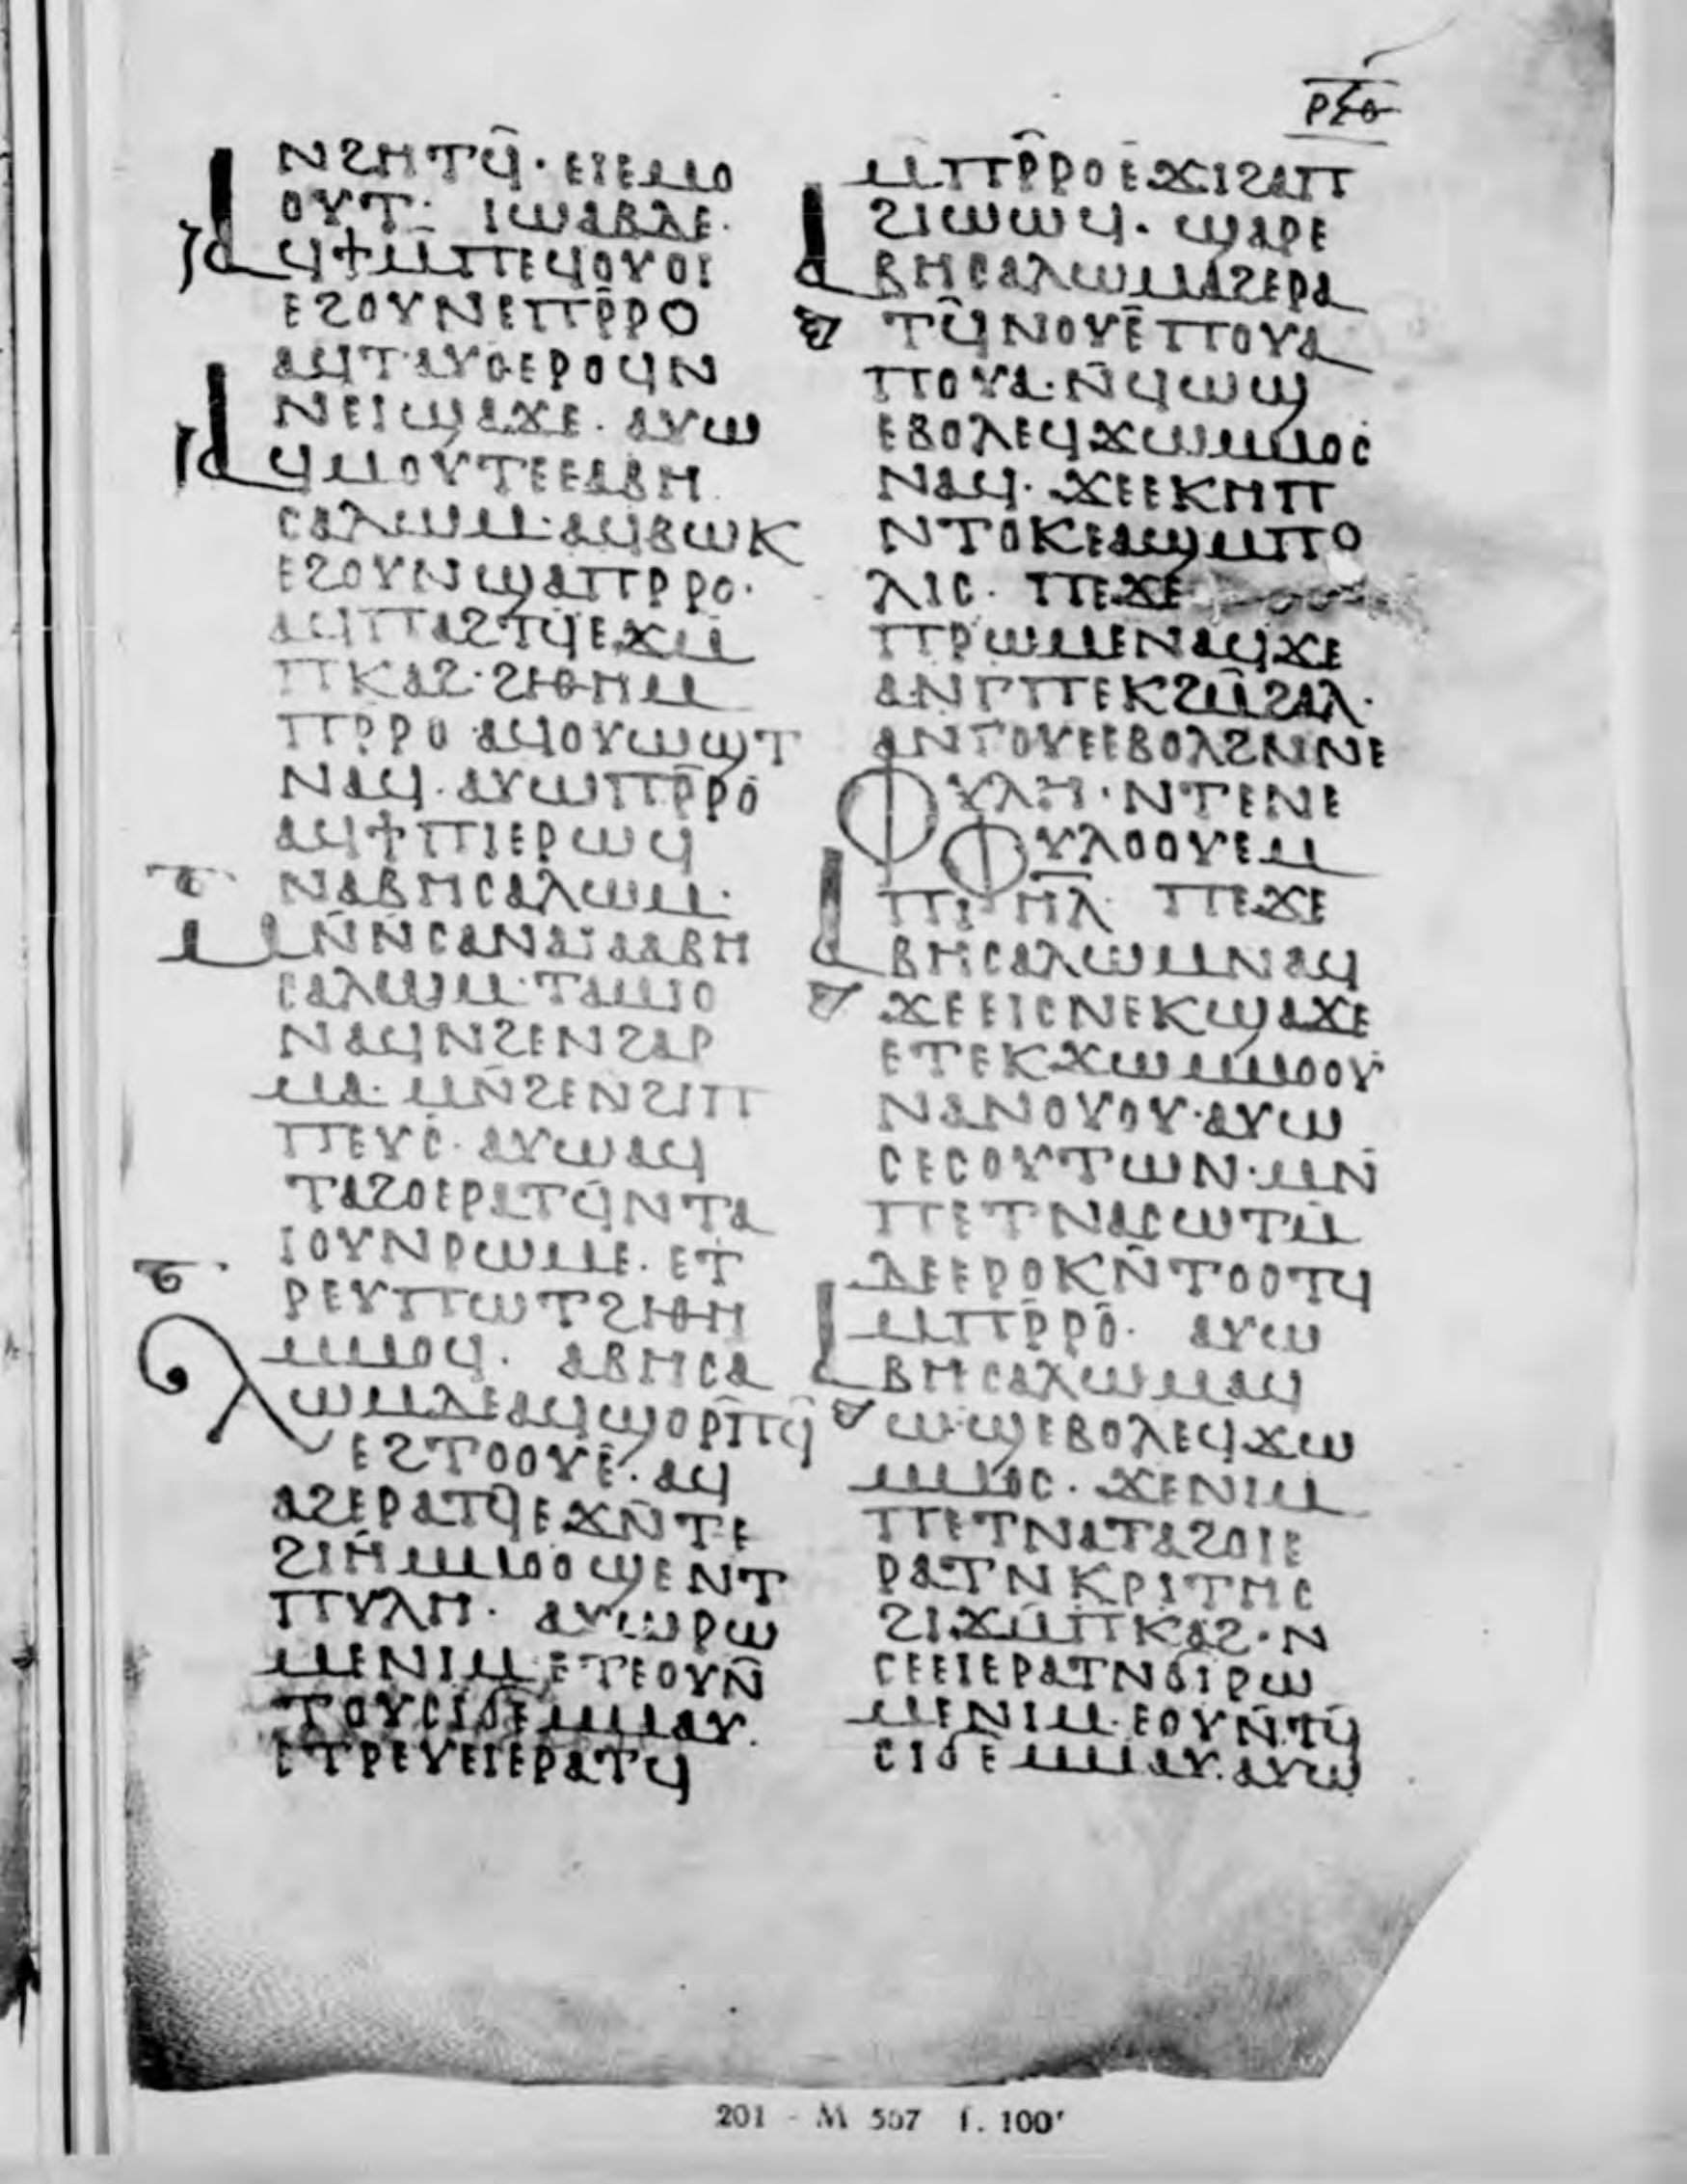 ⲣⲝⲑ
ⲛϩⲏⲧϥ̄· ⲉⲓⲉⲙⲟ
ⲟⲩⲧ· ⲓⲱⲁⲃⲇⲉ·
ⲁϥϯⲙ̄ⲡⲉϥⲟⲩⲟⲓ
ⲉϩⲟⲩⲛⲉⲡⲣ̄ⲣⲟ
ⲁϥⲧⲁⲩⲟⲉⲣⲟϥⲛ
ⲛⲉⲓϣⲁϫⲉ· ⲁⲩⲱ
ⲁϥⲙⲟⲩⲧⲉⲉⲁⲃⲏ
ⲥⲁⲗⲱⲙ· ⲁϥⲃⲱⲕ
ⲉϩⲟⲩⲛϣⲁⲡⲣⲣⲟ·
ⲁϥⲡⲁϩⲧϥⲉϫⲙ̄
ⲡⲕⲁϩ· ϩⲓⲑⲏⲙ
ⲡⲣⲣⲟ ⲁϥⲟⲩⲱϣⲧ
ⲛⲁϥ· ⲁⲩⲱⲡⲣ̄ⲣⲟ
ⲁϥϯⲡⲓⲉⲣⲱϥ
ⲛⲁⲃⲏⲥⲁⲗⲱⲙ·
ⲙⲛ̄ⲛ̄ⲥⲁⲛⲁⲓ̈ⲁⲁⲃⲏ
ⲥⲁⲗⲱⲙ· ⲧⲁⲙⲓⲟ
ⲛⲁϥⲛϩⲉⲛϩⲁⲣ
ⲙⲁ· ⲙⲛ̄ϩⲉⲛϩⲓⲡ
ⲡⲉⲩⲥ· ⲁⲩⲱⲁϥ
ⲧⲁϩⲟⲉⲣⲁⲧϥ̄ⲛⲧⲁ
ⲓⲟⲩⲛⲣⲱⲙⲉ· ⲉⲧ
ⲣⲉⲩⲡⲱⲧϩⲓⲑⲏ
ⲙⲙⲟϥ· ⲁⲃⲏⲥⲁ
ⲗⲱⲙⲇⲉⲁϥϣⲟⲣⲡ̄ϥ̄
ⲉϩⲧⲟⲟⲩⲉ· ⲁϥ
ⲁϩⲉⲣⲁⲧϥⲉϫⲛ̄ⲧⲉ
ϩⲓⲏⲙⲙⲟⲟϣⲉⲛⲧ
ⲡⲩⲗⲏ· ⲁⲩⲱⲣⲱ
ⲙⲉⲛⲓⲙ· ⲉⲧⲉⲟⲩⲛ̄
ⲧⲟⲩⲥⲓϭⲉⲙⲙⲁⲩ·
ⲉⲧⲣⲉⲩⲉⲓⲉⲣⲁⲧϥ
ⲙⲡⲣ̄ⲣⲟⲉ̇ϫⲓϩⲁⲡ
ϩⲓⲱⲱϥ· ϣⲁⲣⲉ
ⲁⲃⲏⲥⲁⲗⲱⲙⲁϩⲉⲣⲁ
ⲧϥ̄ⲛⲟⲩⲉ̄ⲡⲟⲩⲁ
ⲡⲟⲩⲁ· ⲛ̄ϥⲱϣ
ⲉⲃⲟⲗⲉϥϫⲱⲙⲙⲟⲥ
ⲛⲁϥ· ϫⲉⲉⲕⲏⲡ
ⲛⲧⲟⲕⲉⲁϣⲙⲡⲟ
ⲗⲓⲥ· ⲡⲉϫⲉ
ⲡⲣⲱⲙⲉⲛⲁϥϫⲉ
ⲁⲛⲅⲡⲉⲕϩⲙ̄ϩⲁⲗ·
ⲁⲛⲅⲟⲩⲉⲉⲃⲟⲗϩⲛⲛⲉ
ⲫⲩⲗⲏ· ⲛⲧⲉⲛⲉ
ⲫⲩⲗⲟⲟⲩⲉⲙ
ⲡⲓⲏ̄ⲗ̄· ⲡⲉϫⲉ
ⲁⲃⲏⲥⲁⲗⲱⲙⲛⲁϥ
ϫⲉⲉⲓⲥⲛⲉⲕϣⲁϫⲉ
ⲉⲧⲉⲕϫⲱⲙⲙⲟⲟⲩ
ⲛⲁⲛⲟⲩⲟⲩ· ⲁⲩⲱ
ⲥⲉⲥⲟⲩⲧⲱⲛ· ⲙⲛ̄
ⲡⲉⲧⲛⲁⲥⲱⲧⲙ̄
ⲇⲉⲉⲣⲟⲕⲛ̄ⲧⲟⲟⲧϥ
ⲙⲡⲣ̄ⲣⲟ̄· ⲁⲩⲱ
ⲁⲃⲏⲥⲁⲗⲱⲙⲁϥ
ⲱϣⲉⲃⲟⲗⲉϥϫⲱ
ⲙⲙⲟⲥ· ϫⲉⲛⲓⲙ
ⲡⲉⲧⲛⲁⲧⲁϩⲟⲓⲉ
ⲣⲁⲧⲛⲕⲣⲓⲧⲏⲥ
ϩⲓϫⲙ̄ⲡⲕⲁϩ· ⲛ
ⲥⲉⲉⲓⲉⲣⲁⲧⲛϭⲓⲣⲱ
ⲙⲉⲛⲓⲙ· ⲉⲟⲩⲛ̄ⲧϥ̄
ⲥⲓϭⲉⲙⲙⲁⲩ· ⲁⲩⲱ
201 - M 567 f. 100ʳ